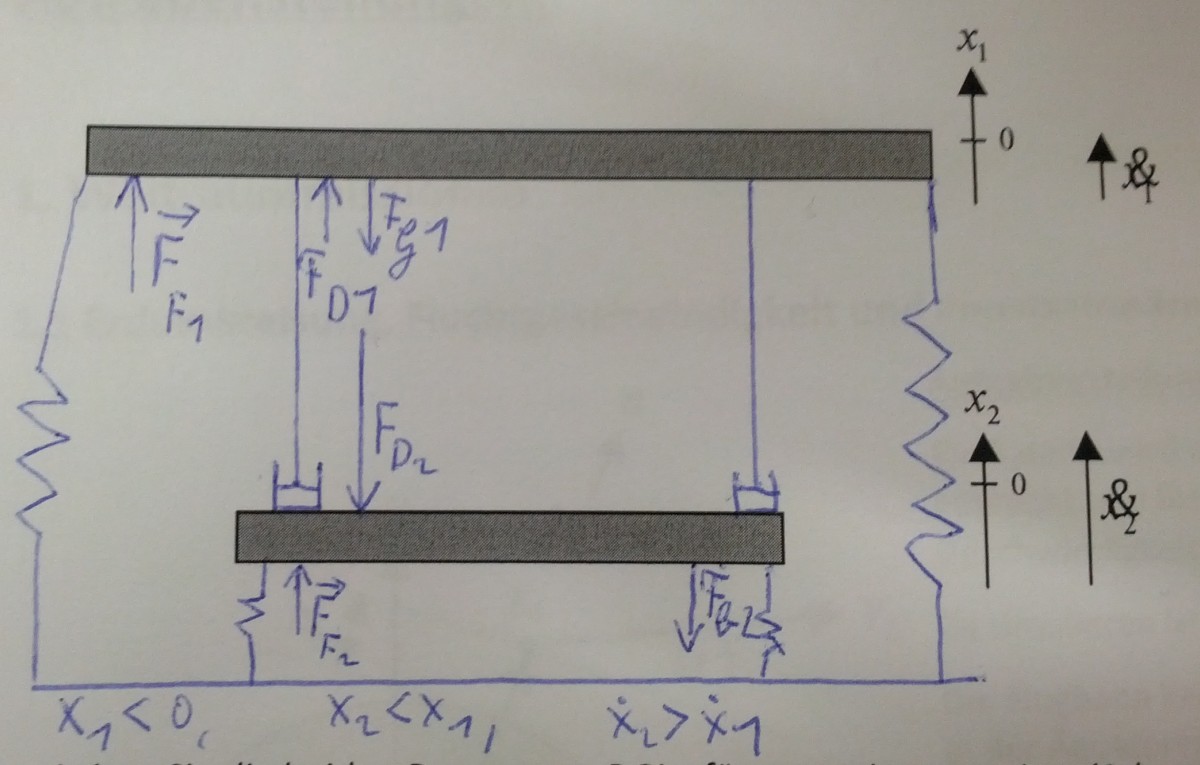 x₁
0
ẋ₁
F⃗_F1
F_D1
F_g1
F_D2
x₂
0
ẋ₂
F⃗_F2
F_g2
x₁ < 0, x₂ < x₁, ẋ₂ > ẋ₁